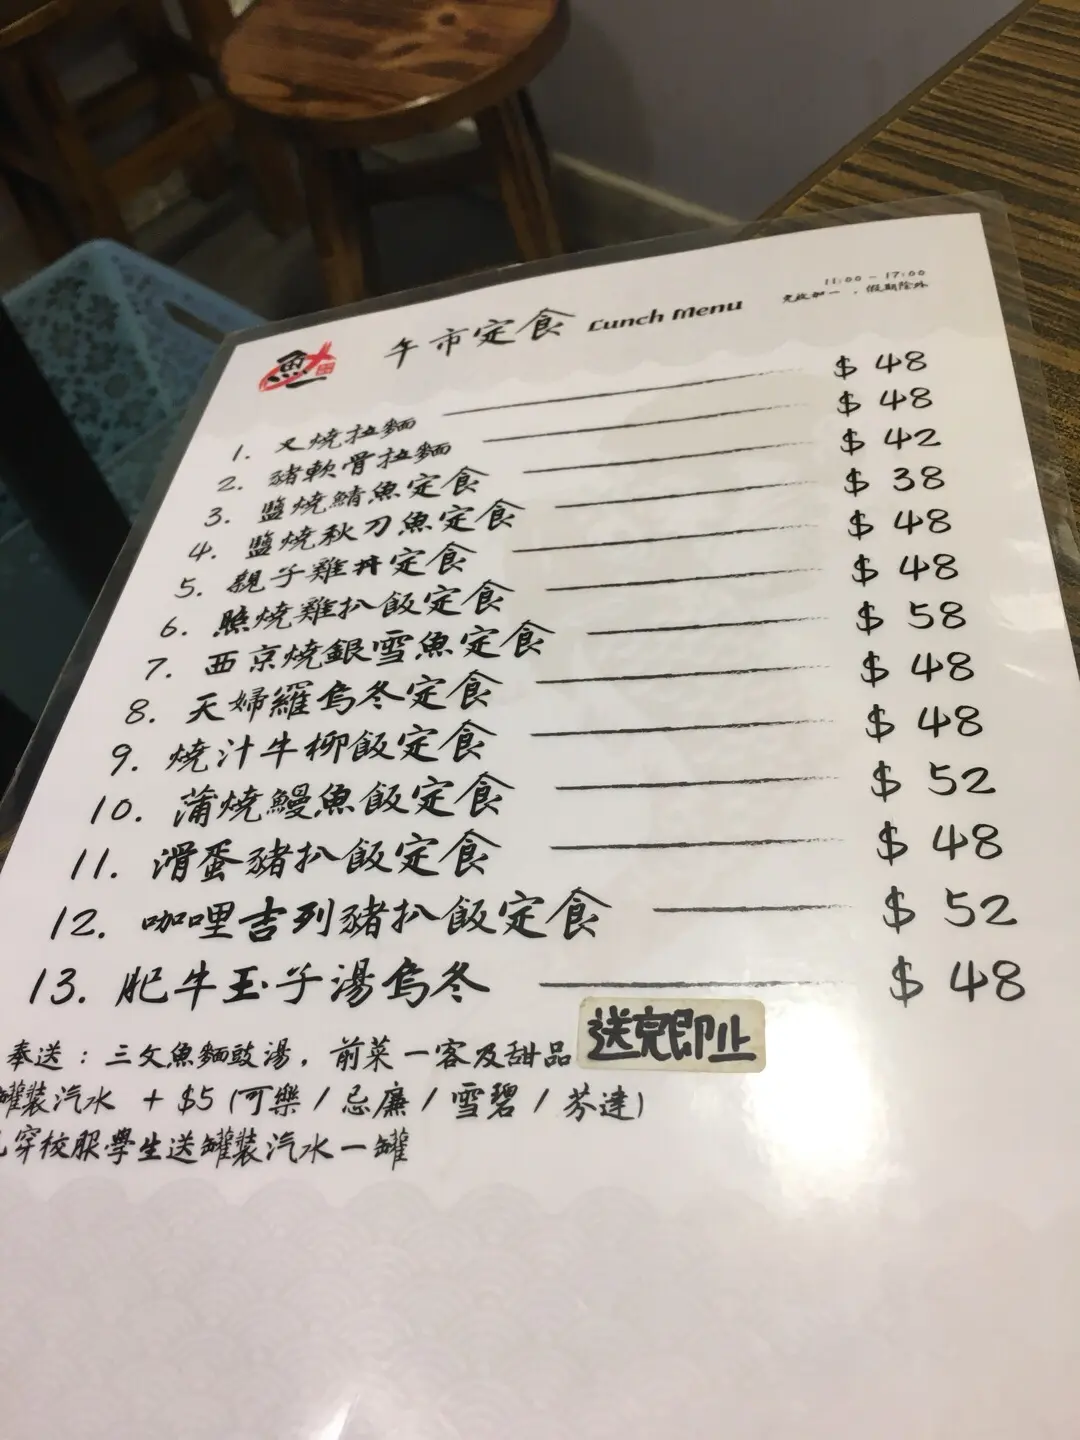 11:00 - 17:00
免收加一 . 假期除外
午市定食 Lunch Menu
1. 叉燒拉麵 $ 48
2. 豬軟骨拉麵 $ 48
3. 鹽燒鯖魚定食 $ 42
4. 鹽燒秋刀魚定食 $ 38
5. 親子雞丼定食 $ 48
6. 照燒雞扒飯定食 $ 48
7. 西京燒銀雪魚定食 $ 58
8. 天婦羅烏冬定食 $ 48
9. 燒汁牛柳飯定食 $ 48
10. 蒲燒鰻魚飯定食 $ 52
11. 滑蛋豬扒飯定食 $ 48
12. 咖哩吉列豬扒飯定食 $ 52
13. 肥牛玉子湯烏冬 $ 48
奉送 : 三文魚麵豉湯, 前菜一客及甜品 送完即止
罐裝汽水 + $5 (可樂 / 忌廉 / 雪碧 / 芬達)
穿校服學生送罐裝汽水一罐